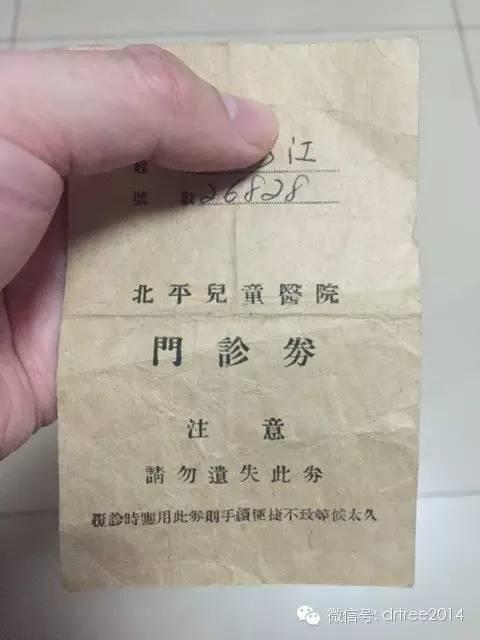 姓 江
號數 26828
北平兒童醫院
門診券
注意
請勿遺失此券
覆診時應用此券則手續便捷不致等候太久
微信号: drtree2014